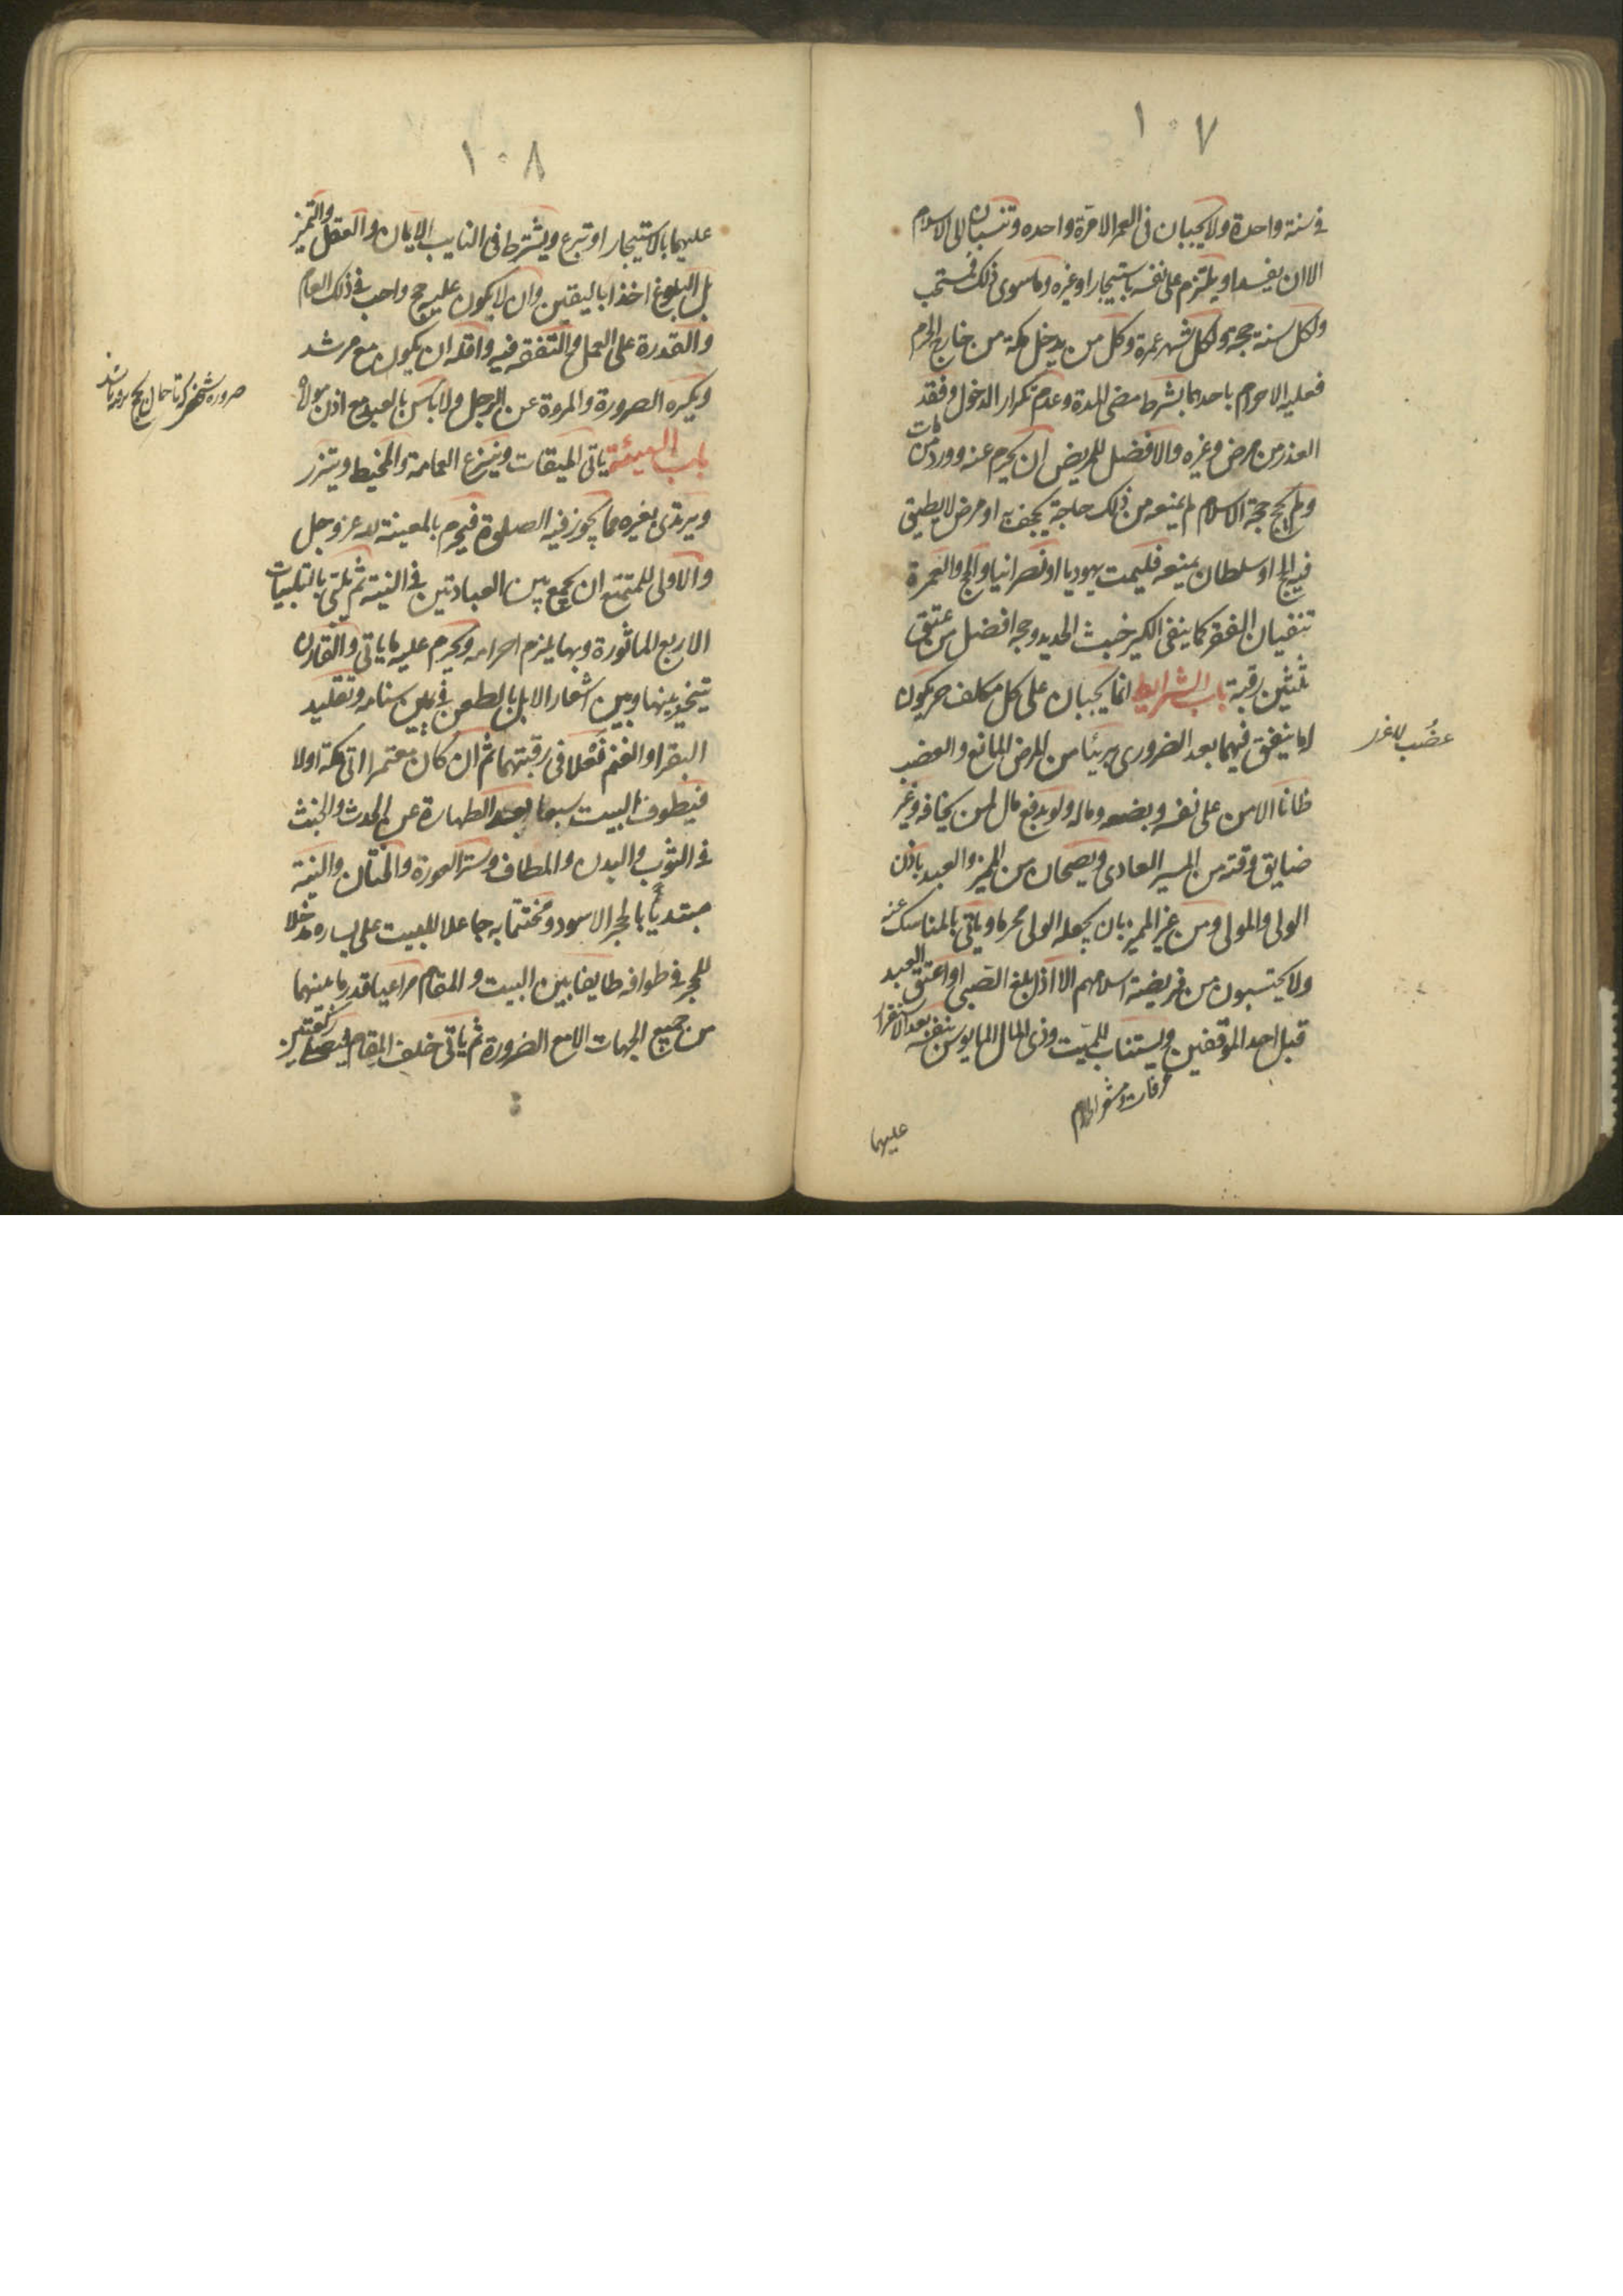 ١٠٧
في سنة واحدة ولا يجبان في العمر الا مرة واحده وتنسبان الى الاسلام
الا ان يفسد او يلتزم على نفسه باستيجار او غيره وما سوى ذلك فمستحب
ولكل سنة حجة ولكل شهر عمرة وكل من يدخل مكة من خارج الحرم
فعليه الاحرام باحدهما بشرط مضى المدة وعدم تكرار الدخول وفقد
العذر من مرض وغيره والافضل للمريض ان يحرم عنه وورد من مات
ولم يحج حجة الاسلام لم يمنعه من ذلك حاجة يجحف به او مرض لا يطيق
فيه الحج او سلطان يمنعه فليمت يهوديا او نصرانيا والحج والعمرة
تنفيان الفقر كما ينفى الكير خبث الحديد وحجه افضل من عتق
ثلثين رقبة باب الشرايط انما يجبان على كل مكلف حر يكون
له ما ينفق فيهما بعد الضرورى بريئا من المرض المانع والعضب
عضب للاغر
ظانا الامن على نفسه وبضعه وماله ولو بدفع مال لمن يخافه وغير
ضايق وقته من المسير العادى ويصحان من المميز والعبد باذن
الولى والمولى ومن غير المميز بان يجعله الولى محرما وياتى بالمناسك عنه
ولا يحتسبون من فريضة اسلامهم الا اذا بلغ الصبى او اعتق العبد
قبل احد الموقفين ويستناب للميت وذى المال المايوس بنفسه بعد الاستقرار
عرفات ومشعر الحرام
عليهما
١٠٨
عليهما بالاستيجار او تبرع ويشترط فى النايب الايمان والعقل والتميز
بل البلوغ اخذا باليقين وان لا يكون عليه حج واجب فى ذلك العام
والقدرة على العمل والتفقه فيه واقله ان يكون مع مرشد
ويكره الصرورة والمروة عن الرجل ولا باس بالعبد مع اذن مولاه
صروره شخصى كه تا حال بحج نرفته باشد
باب الهيئة ياتى الميقات وينزع العمامة والمخيط ويتزر
ويرتدى بغيره مما يجوز فيه الصلوة فيحرم بالمعينة لله عز وجل
والاولى للمتمتع ان يجمع بين العبادتين فى النية ثم ياتى بالتلبيات
الاربع الماثورة وبها يلزم احرامه ويحرم عليه ما ياتى والقارن
يتخير بينها وبين اشعار الابل بالطعن فى يمين سنامه وتقليد
البقر او الغنم نعلا فى رقبتهما ثم ان كان معتمرا اتى مكة اولا
فيطوف بالبيت سبعا بعد الطهارة عن الحدث والخبث
فى الثوب والبدن والمطاف وستر العورة والختان والنية
مبتديًا بالحجر الاسود ومختتما به جاعلا للبيت على يساره مدخلا
للحجر فى طوافه طايفا بين البيت والمقام مراعيا قدر ما بينهما
من جميع الجهات الا مع الضرورة ثم ياتى خلف المقام فيصلى ركعتين